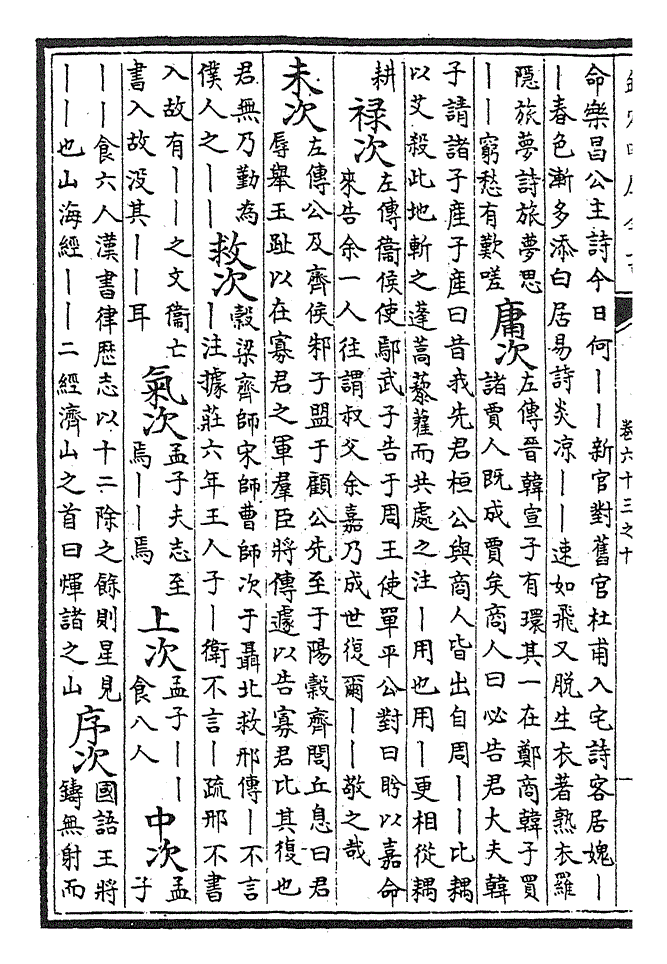 卷六十三之十
命樂昌公主詩今日何丨丨新官對舊官杜甫入宅詩客居媿丨
丨春色漸多添白居易詩炎凉丨丨速如飛又脱生衣著熟衣羅
隱旅夢詩旅夢思
丨丨窮愁有歎嗟
庸次
左傳晉韓宣子有環其一在鄭商韓子買
諸賈人既成賈矣商人曰必告君大夫韓
子請諸子産子産曰昔我先君桓公與商人皆出自周丨丨比耦
以艾殺此地斬之蓬蒿藜藋而共處之注丨用也用丨更相從耦
耕
禄次
左傳衞侯使鄢武子告于周王使單平公對曰肹以嘉命
來告余一人往謂叔父余嘉乃成世復爾丨丨敬之哉
未次
左傳公及齊侯邾子盟于顧公先至于陽穀齊閭丘息曰君
辱舉玉趾以在寡君之軍羣臣將傳遽以告寡君比其復也
君無乃勤為
僕人之丨丨
救次
穀梁齊師宋師曹師次于聶北救邢傳丨不言
丨注據莊六年王人子丨衛不言丨疏邢不書
入故有丨丨之文衞亡
書入故没其丨丨耳
氣次
孟子夫志至
焉丨丨焉
上次
孟子丨丨
食八人
中次
孟
子
丨丨食六人漢書律歴志以十二除之餘則星見
丨丨也山海經丨丨二經濟山之首曰煇諸之山
序次
國語王將
鑄無射而